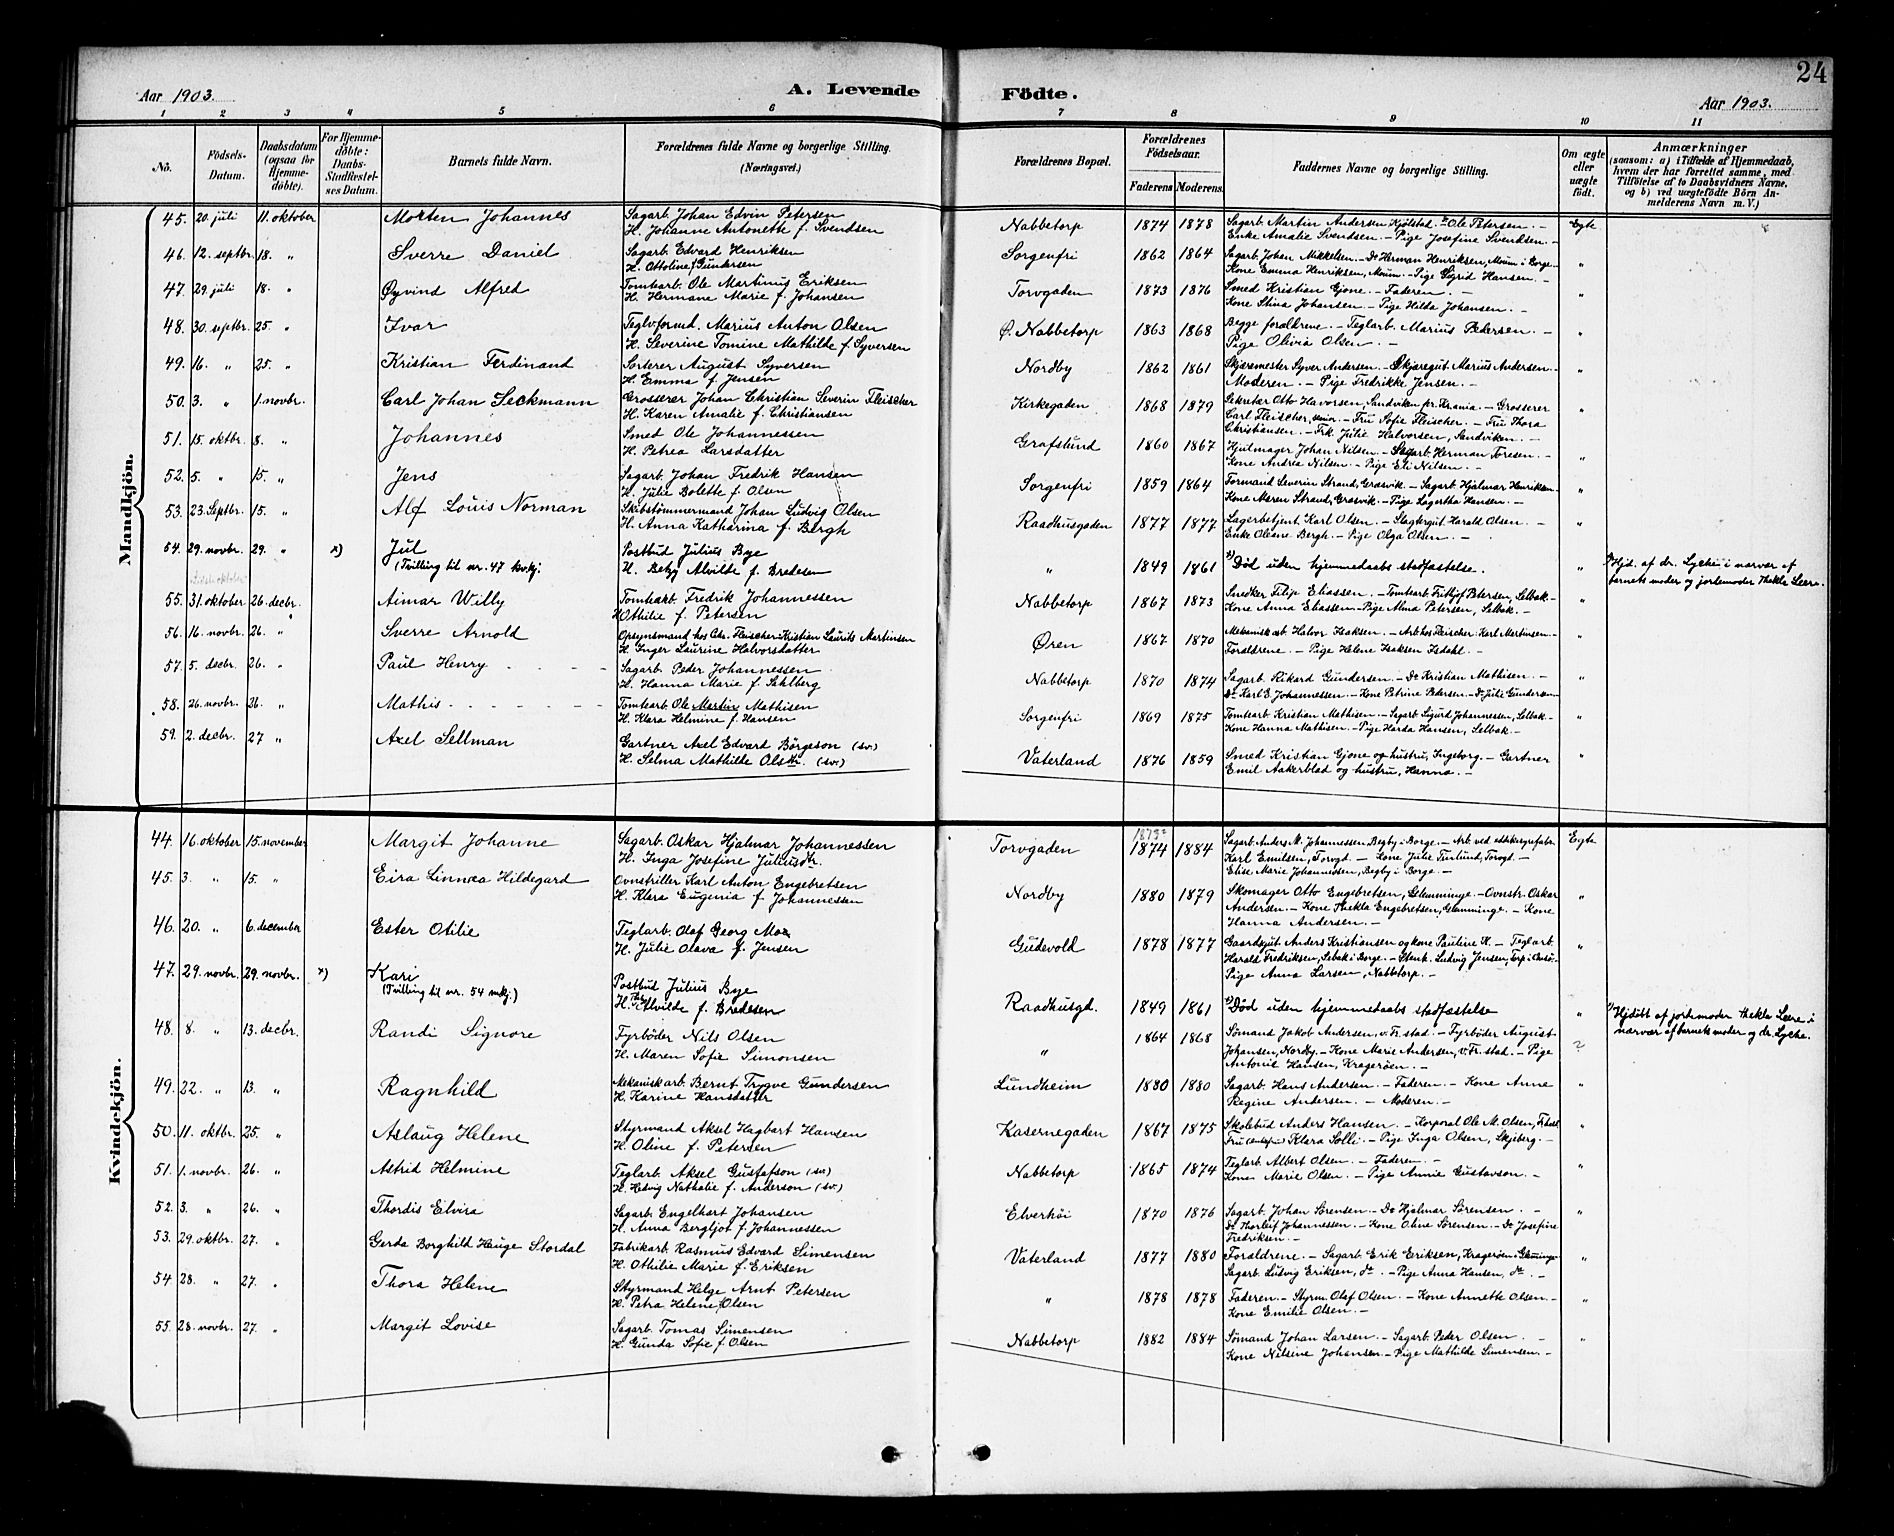 24
Aar 1903. A. Levende Födte. Aar 1903.
1 2 3 4 5 6 7 8 9 10 11
No. Födsels-Datum. Daabsdatum (ogsaa for Hjemme-döbte). For Hjemme-döbte: Daabs-Stadfæstel-ses Datum. Barnets fulde Navn. Forældrenes fulde Navne og borgerlige Stilling. (Næringsvei.) Forældrenes Bopæl. Forældrenes Födselsaar. Faderens Moderens. Faddernes Navne og borgerlige Stilling. Om ægte eller uægte födt. Anmærkninger (saasom: a) i Tilfælde af Hjemmedaab, hvem der har forrettet samme, med Tilföielse af to Daabsvidners Navne, og b) ved uægtefödte Börn An-melderens Navn m. V.)
Mandkjön.
45. 20. juli 11. oktober Morten Johannes Sagarb. Johan Edvin Petersen Nabbetorp 1874 1878 Sagarb. Martin Andersen Kjølstad. - Ole Petersen. - Egte
H. Johanne Antonette f. Svendsen Enke Amalie Svendsen. - Pige Josefine Svendsen. -
46. 12. septbr. 18. " Sverre Daniel Sagarb. Edvard Henriksen Sorgenfri 1862 1864 Sagarb. Johan Mikkelsen. - Do Herman Henriksen, Moum i Borge. "
H. Ottoline f. Gundersen Kone Emma Henriksen, Moum. - Pige Sigrid Hansen. -
47. 29. juli 18. " Øyvind Alfred Tomtearb. Ole Martinus Eriksen Torvgaden 1873 1876 Smed Kristian Gjone. - Faderen. - "
H. Hermane Marie f. Johansen Kone Stina Johansen. - Pige Hilda Johansen. -
48. 30. septbr. 25. " Ivar Teglv.formd. Marius Anton Olsen Ø. Nabbetorp 1863 1868 Begge forældrene. - Teglarb. Marius Petersen. - "
H. Severine Tomine Mathilde f. Syversen Pige Olivia Olsen. -
49. 16. " 25. " Kristian Ferdinand Sorterer August Syversen Nordby 1862 1861 Skjæremester Syver Andersen. - Skjæregut Marius Andersen. "
H. Emma f. Jensen Moderen. - Pige Fredrikke Jensen. -
50. 3. " 1. novbr. Carl Johan Seckmann Grosserer Johan Christian Severin Fleischer Kirkegaden 1868 1879 Sekretær Otto Havorsen, Sandviken pr. Krania. - Grosserer "
H. Karen Amalie f. Christiansen Carl Fleischer, senior. - Fru Sofie Fleischer. - Fru Thora
Christiansen. - Frk. Julie Halvorsen, Sandviken. -
51. 15. oktbr. 8. " Johannes Smed Ole Johannessen Grafslund 1860 1867 Hjulmager Johan Nilsen. - Sagarb. Herman Toresen. - "
H. Petrea Larsdatter Kone Andrea Nilsen. - Pige Eli Nilsen. -
52. 5. " 15. " Jens Sagarb. Johan Fredrik Hansen Sorgenfri 1859 1864 Formand Severin Strand, Græsvik. - Sagarb. Hjalmar Henriksen. "
H. Julie Bolette f. Olsen Kone Maren Strand, Græsvik. - Pige Lagertha Hansen. -
53. 23. Septbr. 15. " Alf Louis Norman Skibstømmermand Johan Ludvig Olsen Raadhusgaden 1877 1877 Lagerbetjent Karl Olsen. - Slagtergut Harald Olsen. - "
H. Anna Katharina f. Bergh Enke Oleane Bergh. - Pige Olga Olsen. -
54. 29. novbr. 29. " x) Jul Postbud Julius Bye " 1849 1861 x) Død uden hjemmedaabs stadfæstelse. " x) Hjd. af dr. Lyche i nærvær af
(Tvilling til nr. 47 kvkj. H. Betzy Alvilde f. Bredesen barnets moder og jordemoder Thekla Leere.
55. 31. oktober 26. decbr. Aimar Willy Tomtearb. Fredrik Johannessen Nabbetorp 1867 1873 Snedker Filip Eliassen. - Tomtearb. Fritjof Petersen, Selbak. - "
H. Othilie f. Petersen Kone Anna Eliassen. - Pige Alma Petersen, Selbak. -
56. 16. novbr. 26. " Sverre Arnold Opsynsmand hos Chr. Fleischer Kristian Laurits Martinsen Øren 1867 1870 Mekanisk arb. Halvor Isaksen. - Arb. hos Fleischer Karl Martinsen. "
H. Inger Laurine Halvorsdatter Forældrene. - Pige Helene Isaksen Isdahl. -
57. 5. decbr. 26. " Paul Henry Sagarb. Peder Johannessen Nabbetorp 1870 1874 Sagarb. Rikard Gundersen. - Do Kristian Mathisen. - "
H. Hanna Marie f. Sahlberg Do Karl E. Johannessen. - Kone Petrine Petersen. - Do Julie Gundersen
58. 26. novbr. 26. " Mathis Tomtearb. Ole Martin Mathisen Sorgenfri 1869 1875 Tomtearb. Kristian Mathisen. - Sagarb. Sigurd Johannessen, Selbak. - "
H. Klara Helmine f. Hansen Kone Hanna Mathisen. - Pige Harda Hansen, Selbak. -
59. 2. decbr. 27 " Axel Sellman Gartner Axel Edvard Börgeson (sv.) Vaterland 1876 1859 Smed Kristian Gjone og hustru, Ingeborg. - Gartner "
H. Selma Mathilde Olsdtr. (sv.) Emil Aakerblad og hustru, Hanna. -
Kvindekjön.
44. 16. oktober 15. november Margit Johanne Sagarb. Oskar Hjalmar Johannessen Torvgaden 1873? 1874 1884 Sagarb. Anders M. Johannessen, Begby i Borge. - Arb. ved eddiksyrefabr. Egte
H. Inga Josefine Juliusdtr. Karl Emilsen, Torvgd. - Kone Julie Furlund, Torvgd. -
Elise Marie Johannessen, Begby i Borge. -
45. 3. " 15. " Eira Linnæa Hildegard Ovnstriller Karl Anton Engebretsen Nordby 1880 1879 Skomager Otto Engebretsen, Glemminge. - Ovnstr. Oskar "
H. Klara Eugenia f. Johannessen Andersen. - Kone Thekla Engebretsen, Glemminge. - Kone
Hanna Andersen. -
46. 20. " 6. december Ester Otilie Teglarb. Olaf Georg Moe Gudevold 1878 1877 Gaardsgut Anders Kristiansen og kone Pauline K. - Teglarb. "
H. Julie Olava f. Jensen Harald Fredriksen, Sebak i Borge. - Stenh. Ludvig Jensen, Torp i
Pige Anna Larsen, Nabbetorp. -
47. 29. novbr. 29. novbr. x) Kari Postbud Julius Bye Raadhusgd. 1849 1861 x) Død uden hjemmedaabs stadfæstelse " x) Hjdøbt af jordemoder Thekla Leere i
(Tvilling til nr. 54 mkj.) H. Alvilde f. Bredesen nærvær af barnets moder og dr. Lyche.
48. 8. " 13. decbr. Randi Signore Fyrbøder Nils Olsen " 1864 1868 Sømand Jakob Andersen, v. Fr.stad. - Fyrbøder August ?
H. Maren Sofie Simonsen Johansen, Nordby. - Kone Marie Andersen, v. Fr.stad. - Pige
Antonie Hansen, Kragerøen. -
49. 22. " 13. " Ragnhild Mekanisk arb. Bernt Trygve Gundersen Lundheim 1880 1880 Sagarb. Hans Andersen. - Faderen. - Kone Anne "
H. Karine Hansdatter Regine Andersen. - Moderen. -
50. 11. oktbr. 25. " Aslaug Helene Styrmand Aksel Hagbart Hansen Kasernegaden 1867 1875 Skolebud Anders Hansen. - Korporal Ole M. Olsen, "
H. Oline f. Petersen Fru Klara Solli. - Pige Inga Olsen, Skjeberg. -
51. 1. novbr. 26. " Astrid Helmine Teglarb. Aksel Gustafson (sv.) Nabbetorp 1865 1874 Teglarb. Albert Olsen. - Faderen. - "
H. Hedvig Nathalie f. Anderson (sv.) Kone Marie Olsen. - Pige Annie Gustavson. -
52. 3. " 26. " Thordis Elvira Sagarb. Engelhart Johansen Elverhöi 1870 1876 Sagarb. Johan Sørensen. - Do Hjalmar Sørensen. - "
H. Anna Bergljot f. Johannessen Do Thorleif Johannessen. - Kone Oline Sørensen. - Do Josefine
Fredriksen. -
53. 29. oktbr. 27. " Gerda Borghild Hauge Stordal Fabrikarb. Rasmus Edvard Simensen Vaterland 1877 1880 Forældrene. - Sagarb. Erik Eriksen, Kragerøen i Glemminge "
H. Othilie Marie f. Eriksen Sagarb. Ludvig Eriksen, do. - Pige Anna Hansen, do. -
54 28. " 27. " Thora Helene Styrmand Helge Arnt Petersen " 1878 1878 Faderen. - Styrm. Olaf Olsen. - Kone Annette Olsen. - "
H. Petra Helene f. Olsen Kone Emilie Olsen. -
55. 28. novbr. 27. " Margit Lovise Sagarb. Tomas Simensen Nabbetorp 1882 1884 Sømand Johan Larsen. - Sagarb. Peder Olsen. - "
H. Gunda Sofie f. Olsen Kone Nilsine Johansen. - Pige Mathilde Simensen. -